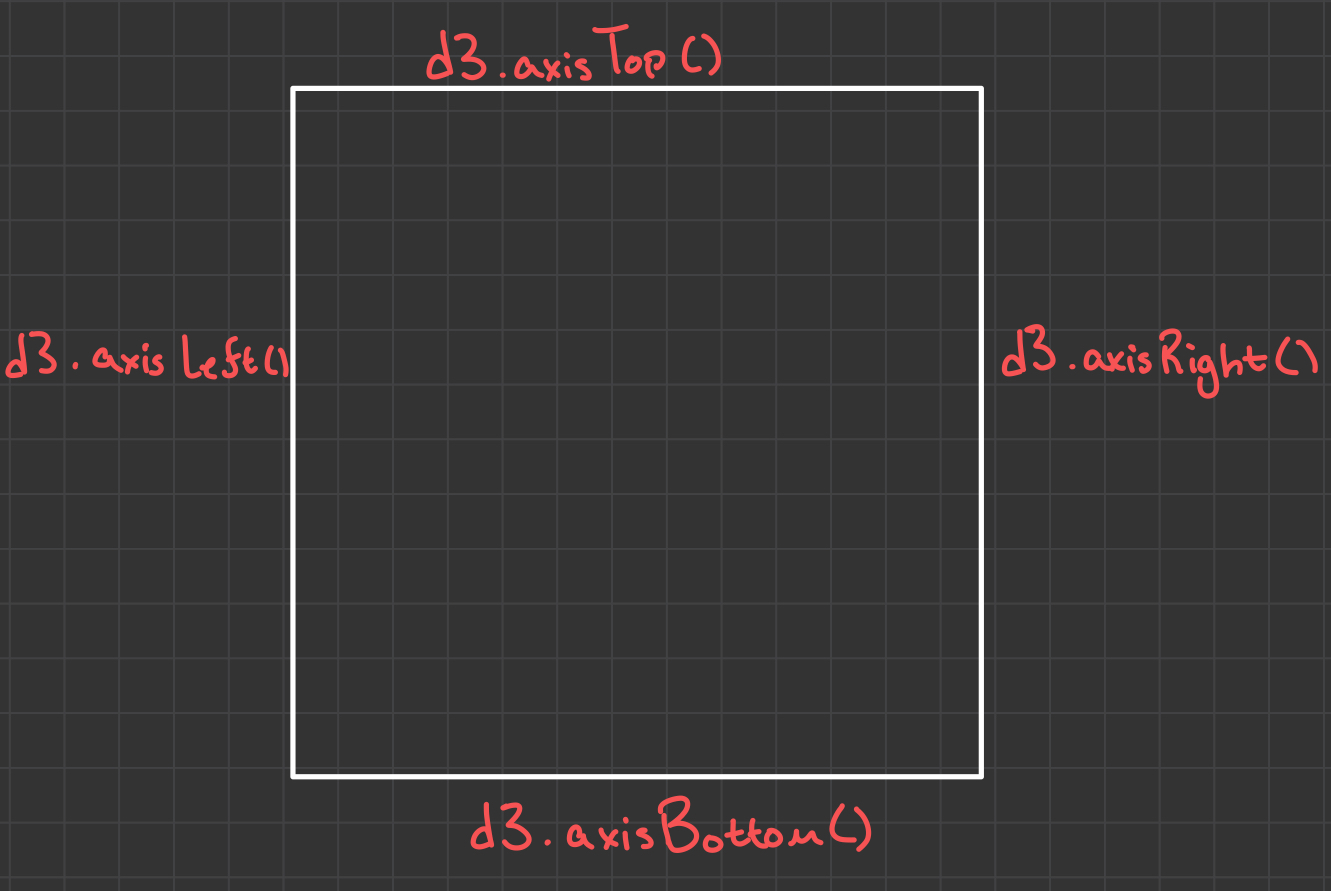 d3.axisTop()
d3.axisLeft()
d3.axisRight()
d3.axisBottom()